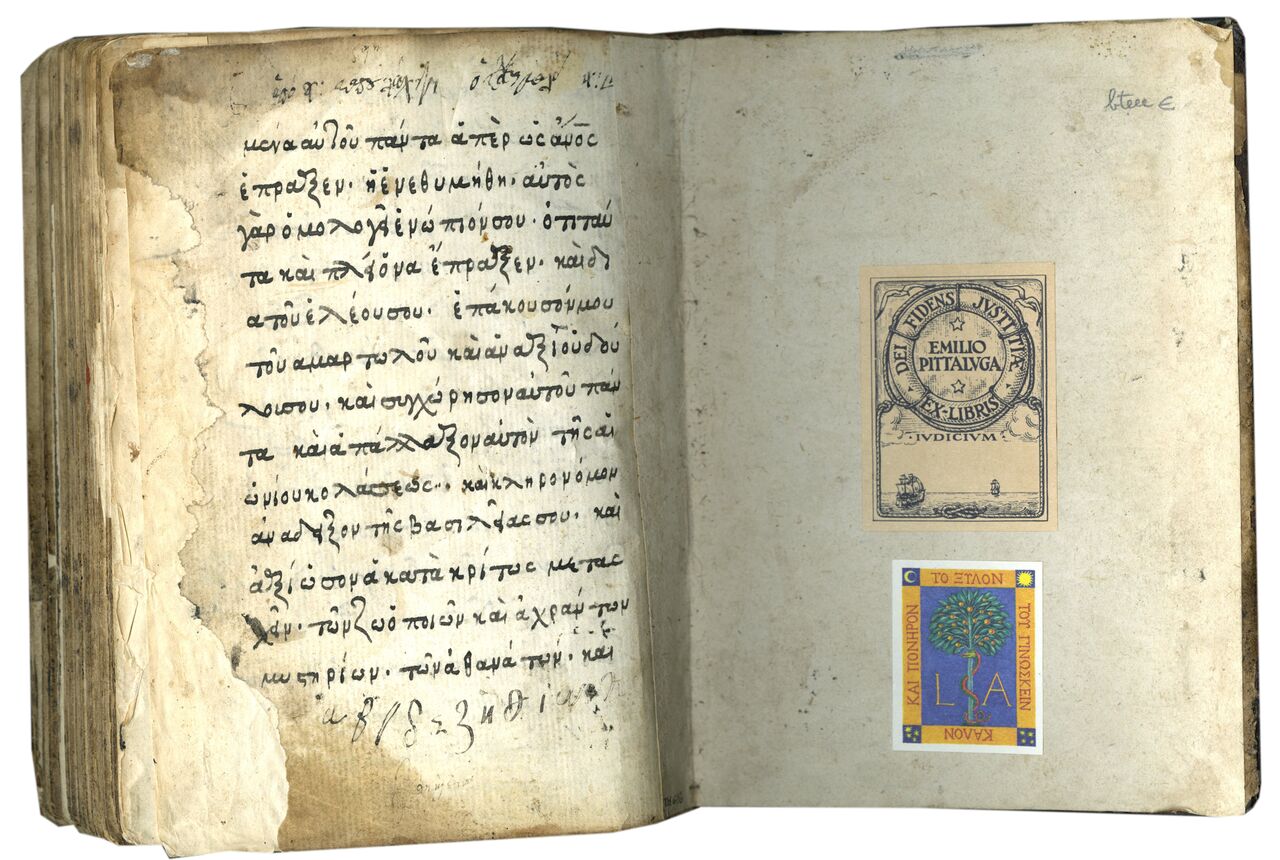 μενα αὐτοῦ πάντα ἅπερ ὡς ἄνος
ἔπραξεν. ἢ ἐνεθυμήθη. αὐτὸς
γὰρ ὁμολογεῖ ἐνώπιόν σου. ὅτι ταῦ
τα καὶ πλείονα ἔπραξεν. καὶ δι
α τοῦ ἐλέου σου. ἐπάκουσόν μου
τοῦ αμαρτωλοῦ καὶ ἀναξίου δού
λοι σου. καὶ συγχώρησον αυτοῦ πάν
τα καὶ ἀπάλλαξον αυτὸν τῆς αἰ
ωνίου κολάσεως. καὶ κληρονόμον
ἀνάδειξον τῆς βασιλείας σου. καὶ
ἀξίωσον ἀκατακρίτως μετας
χεῖν. τῶν ζωοποιῶν καὶ ἀχράντων
μυστηρίων. τῶν ἀθανάτων. καὶ
α β γ δ ε ζ η θ ι
bteee €
DEI FIDENS JVSTITIÆ
EMILIO
PITTALVGA
EX-LIBRIS
·IVDICIVM·
ΤΟ ΞΥΛΟΝ
ΤΟΥ ΓΙΝΩΣΚΕΙΝ
ΚΑΛΟΝ
ΚΑΙ ΠΟΝΗΡΟΝ
L A